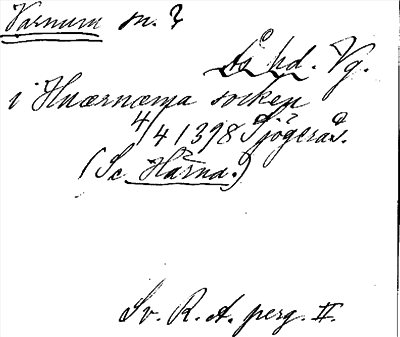 Varnum sn. ?
Ås hd. Vg.
i Huærnæma socken
4/4 1398 Sjögerås.
(Sc Härna.)
Sv. R. A. perg. II.